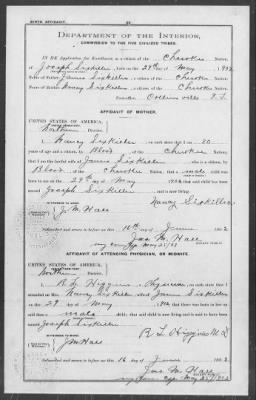 BIRTH AFFIDAVIT.
DEPARTMENT OF THE INTERIOR,
COMMISSION TO THE FIVE CIVILIZED TRIBES.
IN RE Application for Enrollment, as a citizen of the Cherokee Nation,
of Joseph Sixkiller, born on the 29th day of May, 1902
Name of Father: James Sixkiller, a citizen of the Cherokee Nation.
Name of Mother: Nancy Sixkiller, a citizen of the Cherokee Nation.
Postoffice Collinsville I.T.
AFFIDAVIT OF MOTHER.
UNITED STATES OF AMERICA,
Northern District.
I, Nancy Sixkiller, on oath state that I am 20
years of age and a citizen, by Blood, of the Cherokee Nation;
that I am the lawful wife of James Sixkiller, who is a citizen, by
Blood, of the Cherokee Nation; that a male child was
born to me on 29th day of May, 1902, that said child has been
named Joseph Sixkiller, and is now living.
Nancy Sixkiller
J. M. Hall
Subscribed and sworn to before me this 16th day of June, 1902
Jas. M. Hall
my com Exp May 25/
AFFIDAVIT OF ATTENDING PHYSICIAN, OR MIDWIFE.
UNITED STATES OF AMERICA,
Northern District.
I, R L Higgins, a Physician, on oath state that I
attended on Mrs. Nancy Sixkiller, wife of James Sixkiller
on the 29 day of May, 1902; that there was born to her on said date a
male child; that said child is now living and is said to have
been named Joseph Sixkiller
R L Higgins M.D.
J M Hall
Subscribed and sworn to before me this 16 day of June, 1902
Jas. M. Hall
my com Exp May 25/